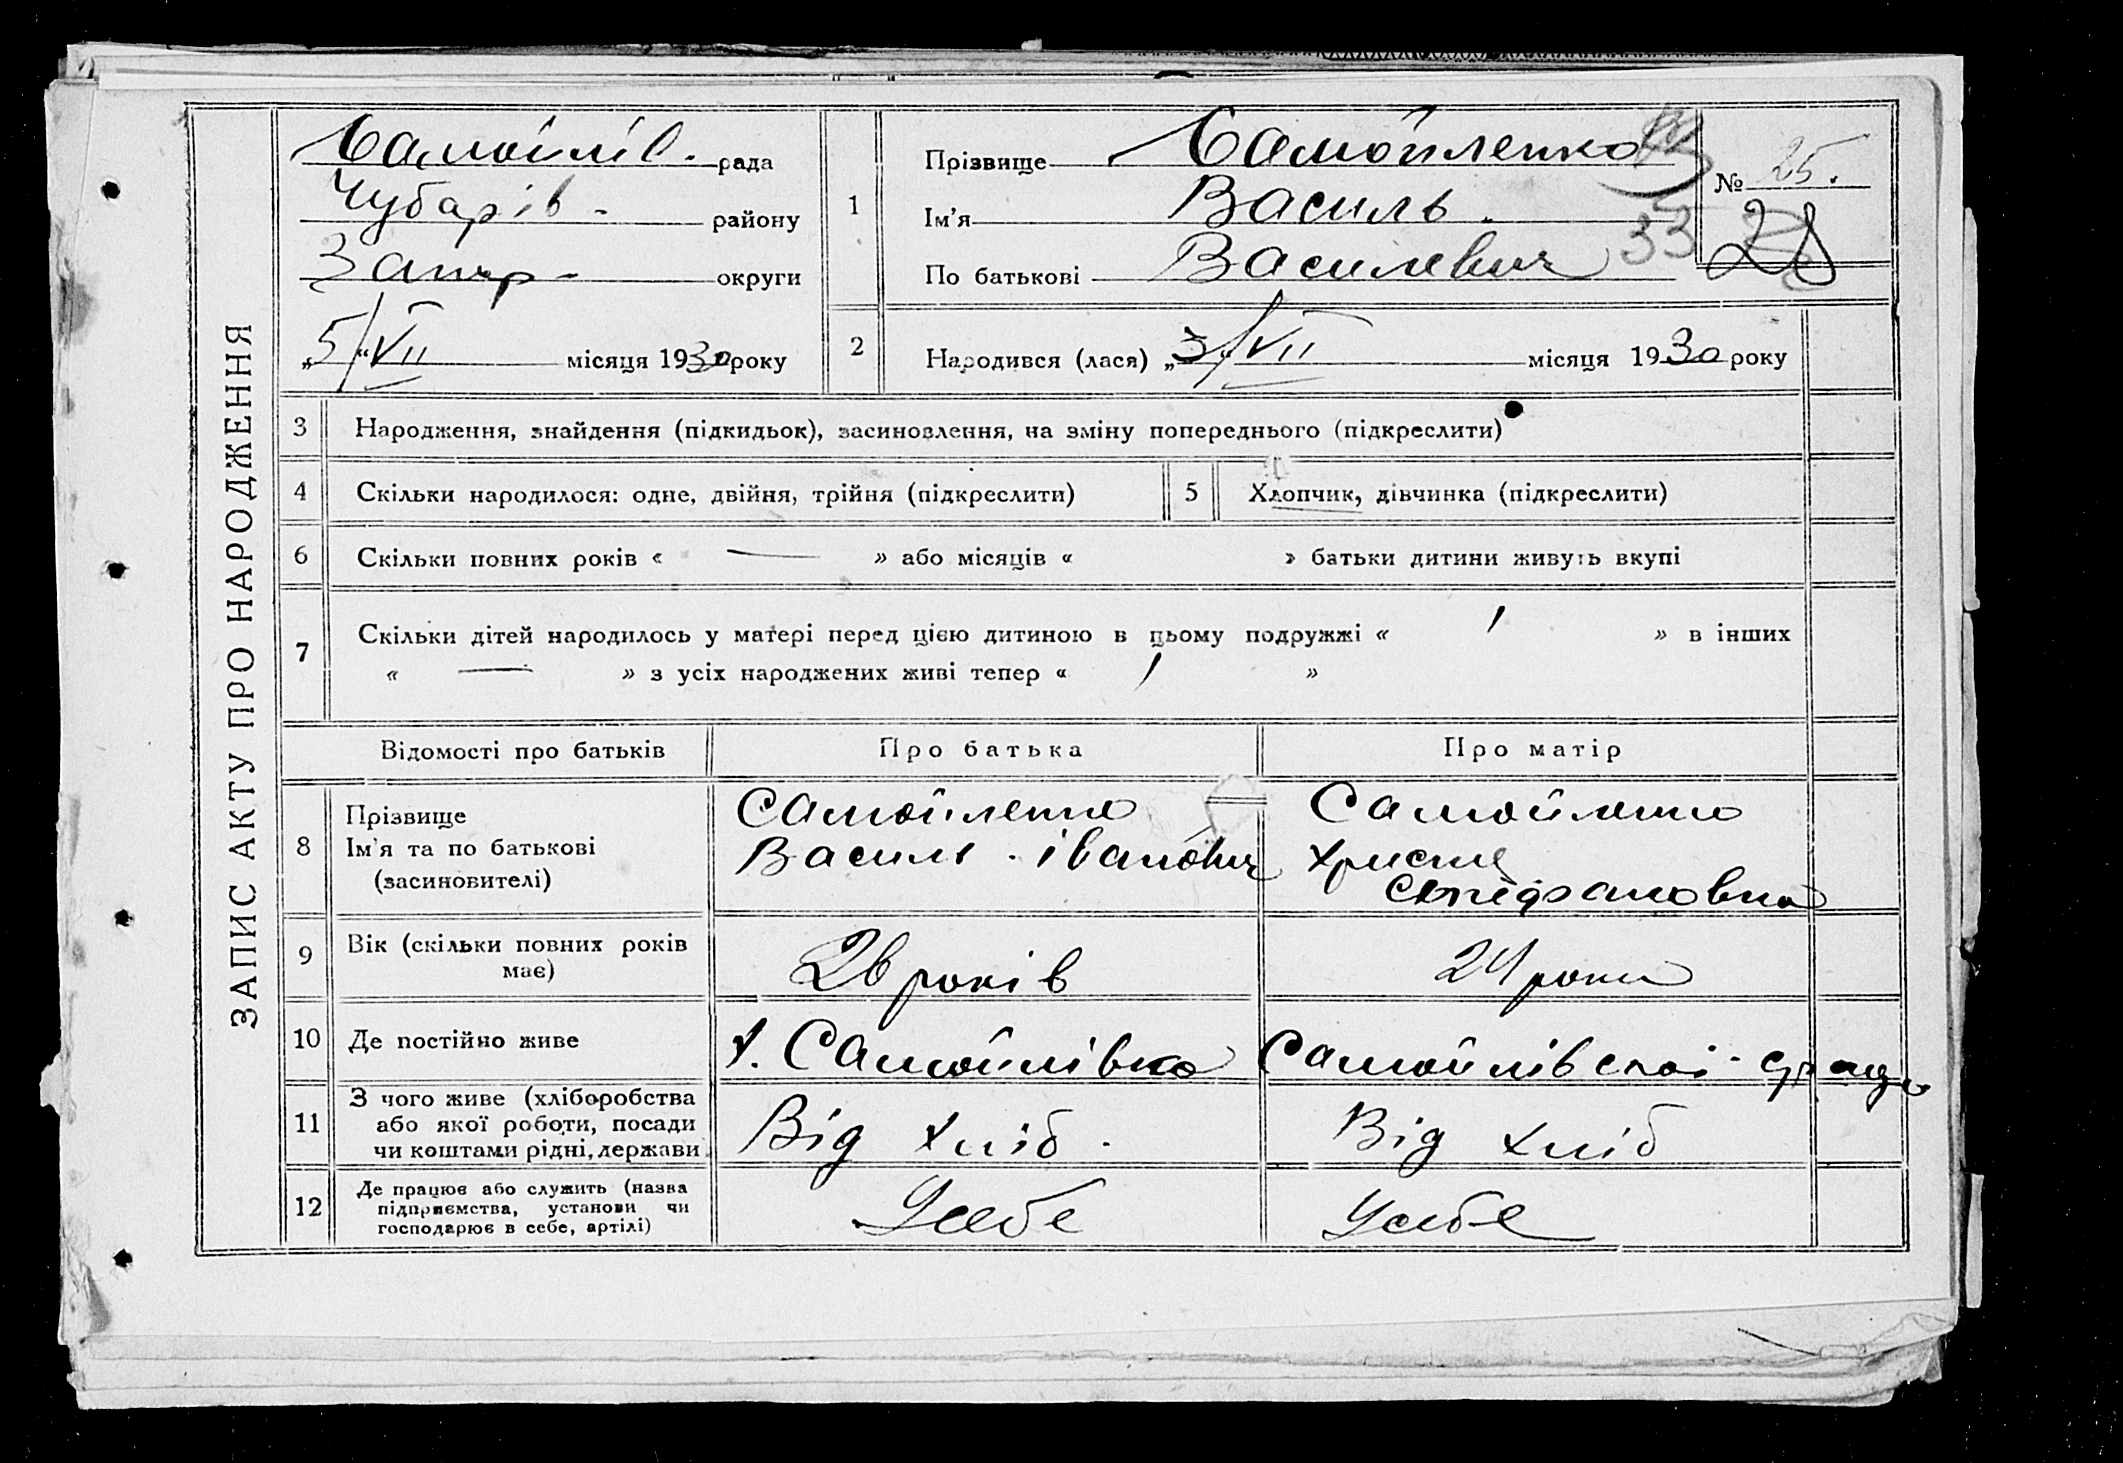 ЗАПИС АКТУ ПРО НАРОДЖЕННЯ
Самойлів. рада
Чубарів- району
Запор- округи
„5/“ VII місяця 1930 року
1
Прізвище Самойленко
Ім'я Василь.
По батькові Василевич
№ 25.
33
28
2
Народився (лася) „3/“ VII місяця 1930 року
3 Народження, знайдення (підкидьок), засиновлення, на зміну попереднього (підкреслити)
4 Скільки народилося: одне, двійня, трійня (підкреслити)
5 Хлопчик, дівчинка (підкреслити)
6 Скільки повних років « — » або місяців « » батьки дитини живуть вкупі
7 Скільки дітей народилось у матері перед цією дитиною в цьому подружжі « 1 » в інших
« — » з усіх народжених живі тепер « 1 »
Відомості про батьків Про батька Про матір
8 Прізвище
Ім'я та по батькові
(засиновителі)
Самойленко
Василь. Іванович
Самойленко
Христя
Стефановна
9 Вік (скільки повних років
має)
26 років
24 роки
10 Де постійно живе
х. Самойлівка
Самойлівскої
11 З чого живе (хліборобства
або якої роботи, посади
чи коштами рідні, держави
Від хліб.
Від хліб
12 Де працює або служить (назва
підприємства, установи чи
господарює в себе, артілі)
Усебе
Усебе